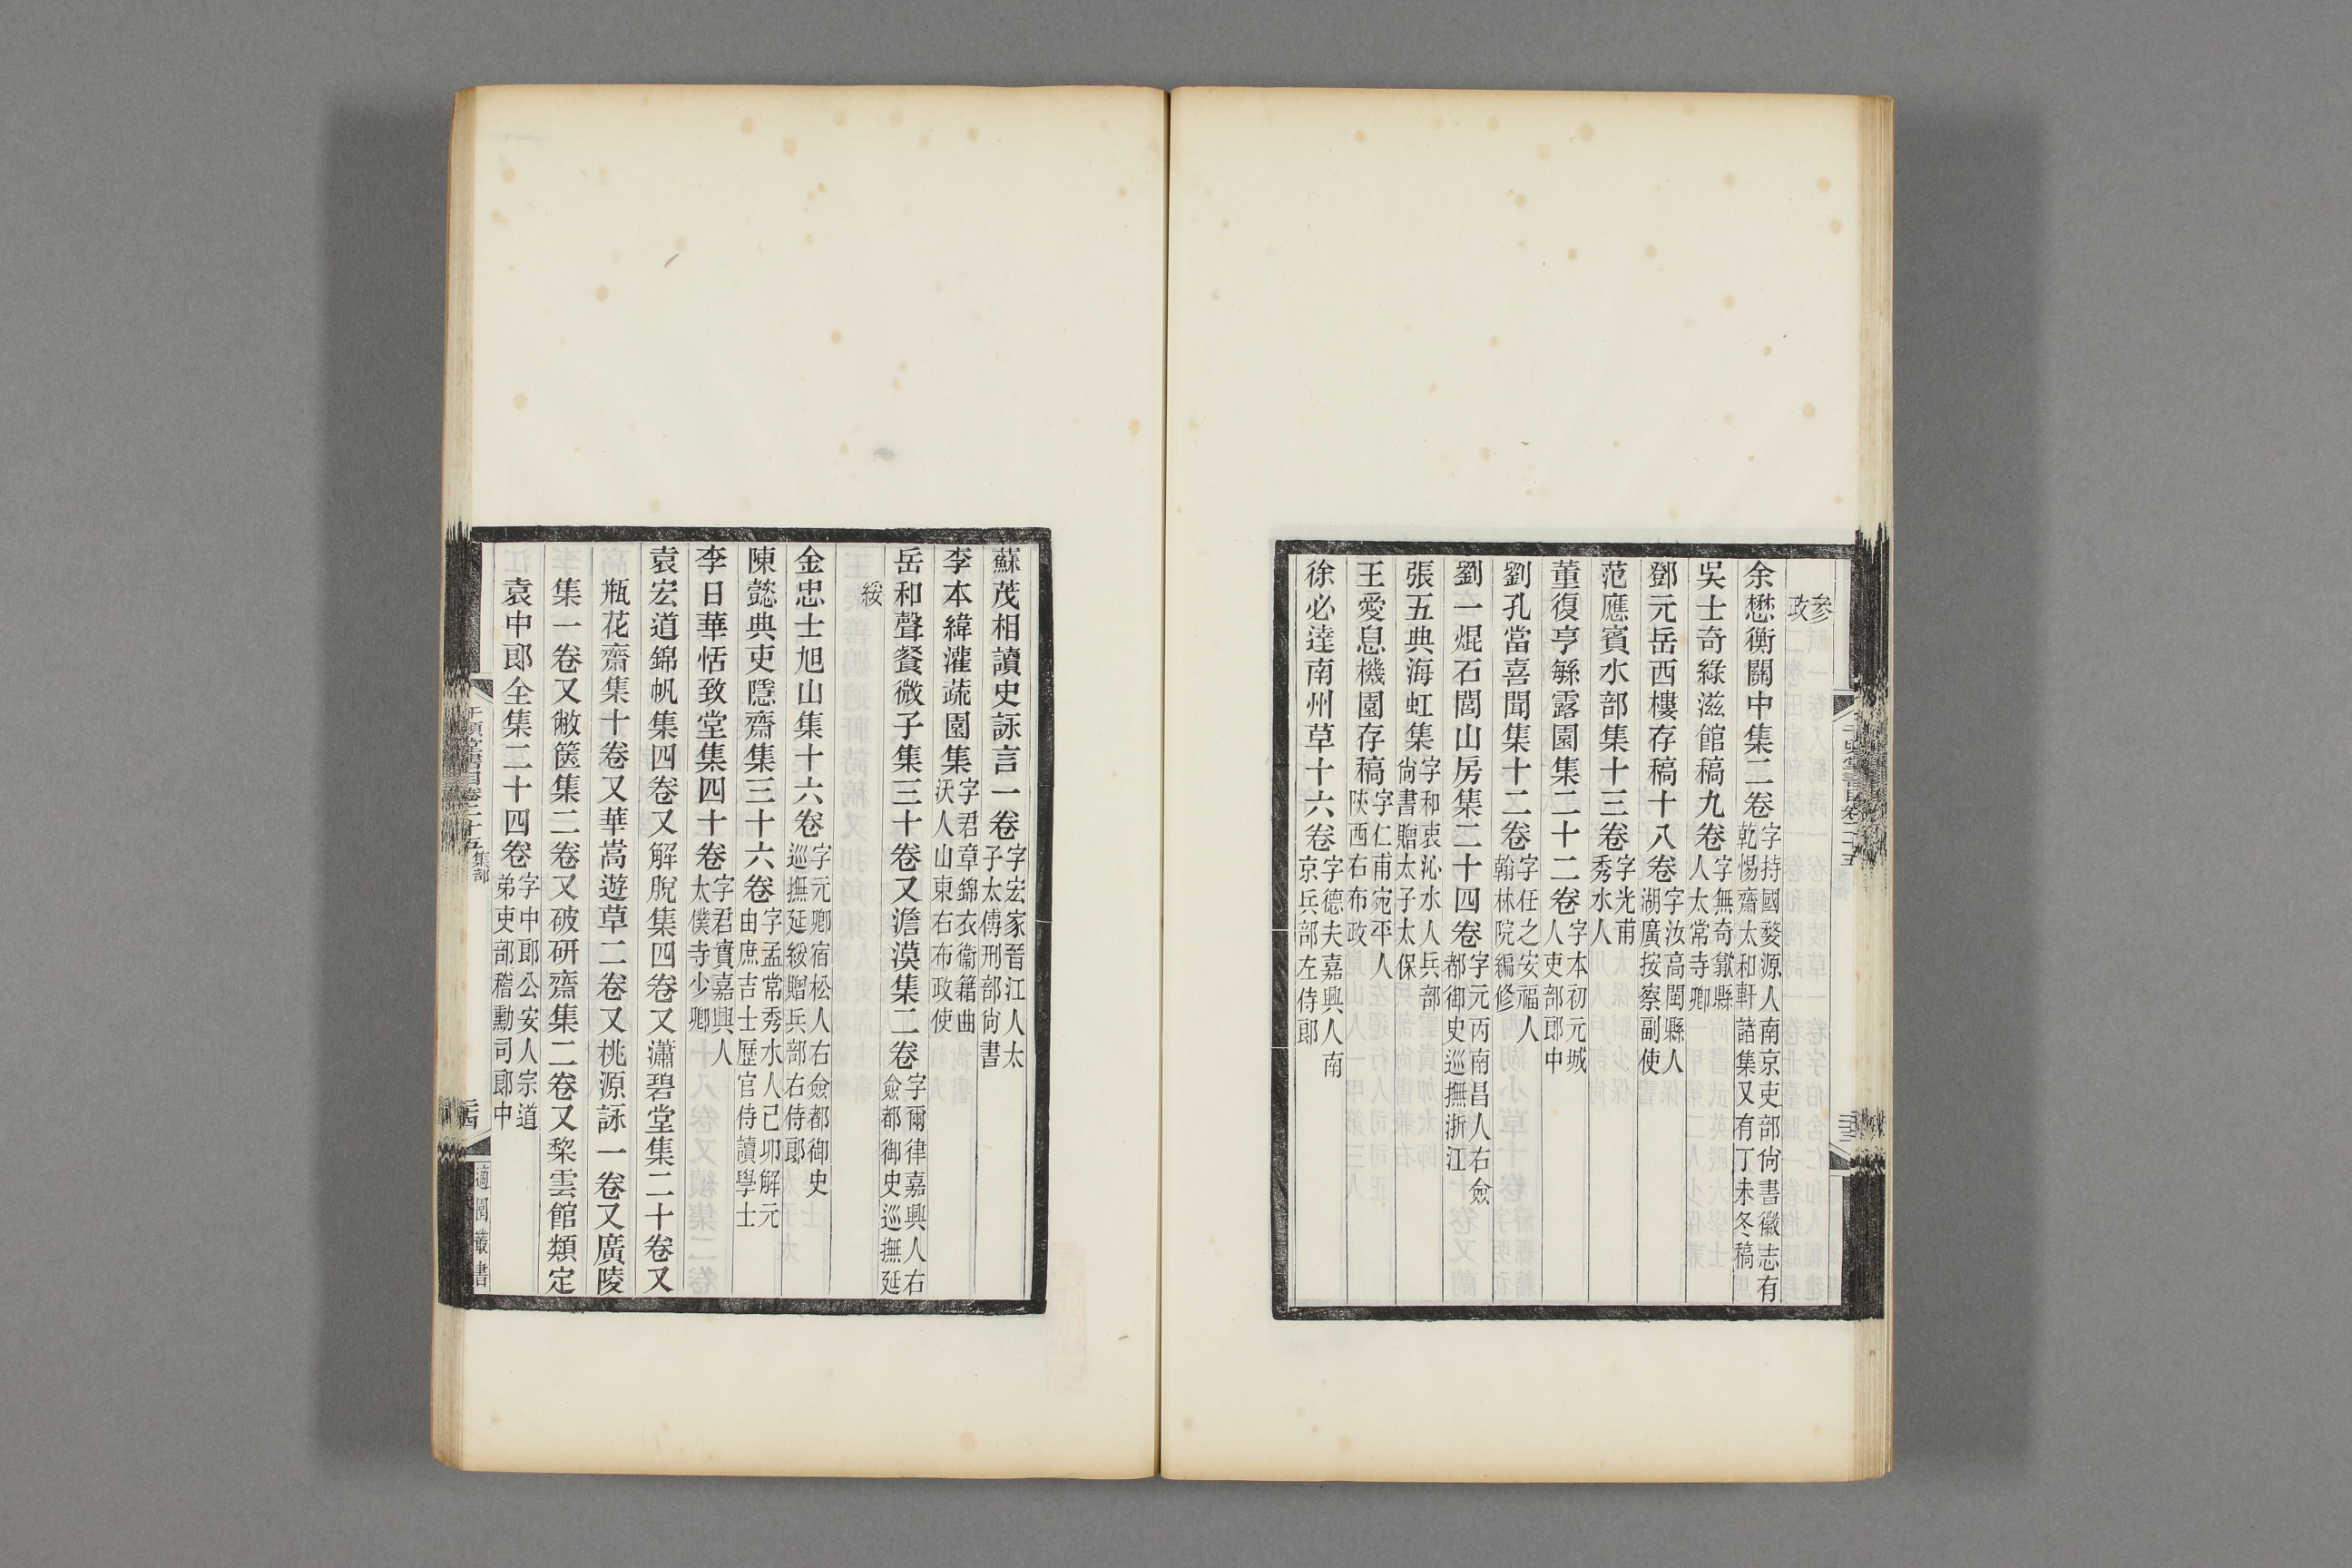 參政
余懋衡關中集二卷字持國婺源人南京吏部尙書徽志有乾惕齋太和軒諸集又有丁未冬稿
吳士奇綠滋館稿九卷字無奇歙縣人太常寺卿
鄧元岳西樓存稿十八卷字汝高閩縣人湖廣按察副使
范應賓水部集十三卷字光甫秀水人
董復亨繇露園集二十二卷字本初元城人吏部郎中
劉孔當喜聞集十二卷字任之安福人翰林院編修
劉一焜石閭山房集二十四卷字元丙南昌人右僉都御史巡撫浙江
張五典海虹集字和衷沁水人兵部尙書贈太子太保
王愛息機園存稿字仁甫宛平人陝西右布政
徐必達南州草十六卷字德夫嘉興人南京兵部左侍郎
蘇茂相讀史詠言一卷字宏家晉江人太子太傅刑部尙書
李本緯灌蔬園集字君章錦衣衞籍曲沃人山東右布政使
岳和聲餐微子集三十卷又澹漠集二卷字爾律嘉興人右僉都御史巡撫延
綏
金忠士旭山集十六卷字元卿宿松人右僉都御史巡撫延綏贈兵部右侍郎
陳懿典吏隱齋集三十六卷字孟常秀水人己卯解元由庶吉士歷官侍讀學士
李日華恬致堂集四十卷字君實嘉興人太僕寺少卿
袁宏道錦帆集四卷又解脫集四卷又瀟碧堂集二十卷又
瓶花齋集十卷又華嵩遊草二卷又桃源詠一卷又廣陵
集一卷又敝篋集二卷又破研齋集二卷又棃雲館類定
袁中郎全集二十四卷字中郎公安人宗道弟吏部稽勳司郎中
千頃堂書目卷二十五 集部
適園叢書